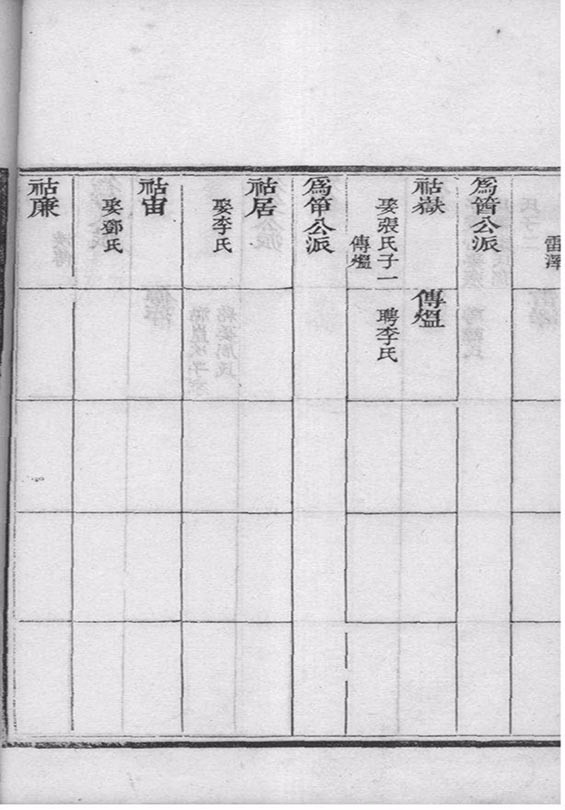 雷澤
為管公派
祜嶽
傳熅
娶張氏子一
傳熅
聘李氏
為筩公派
祜居
娶李氏
祜宙
娶鄧氏
祜廉